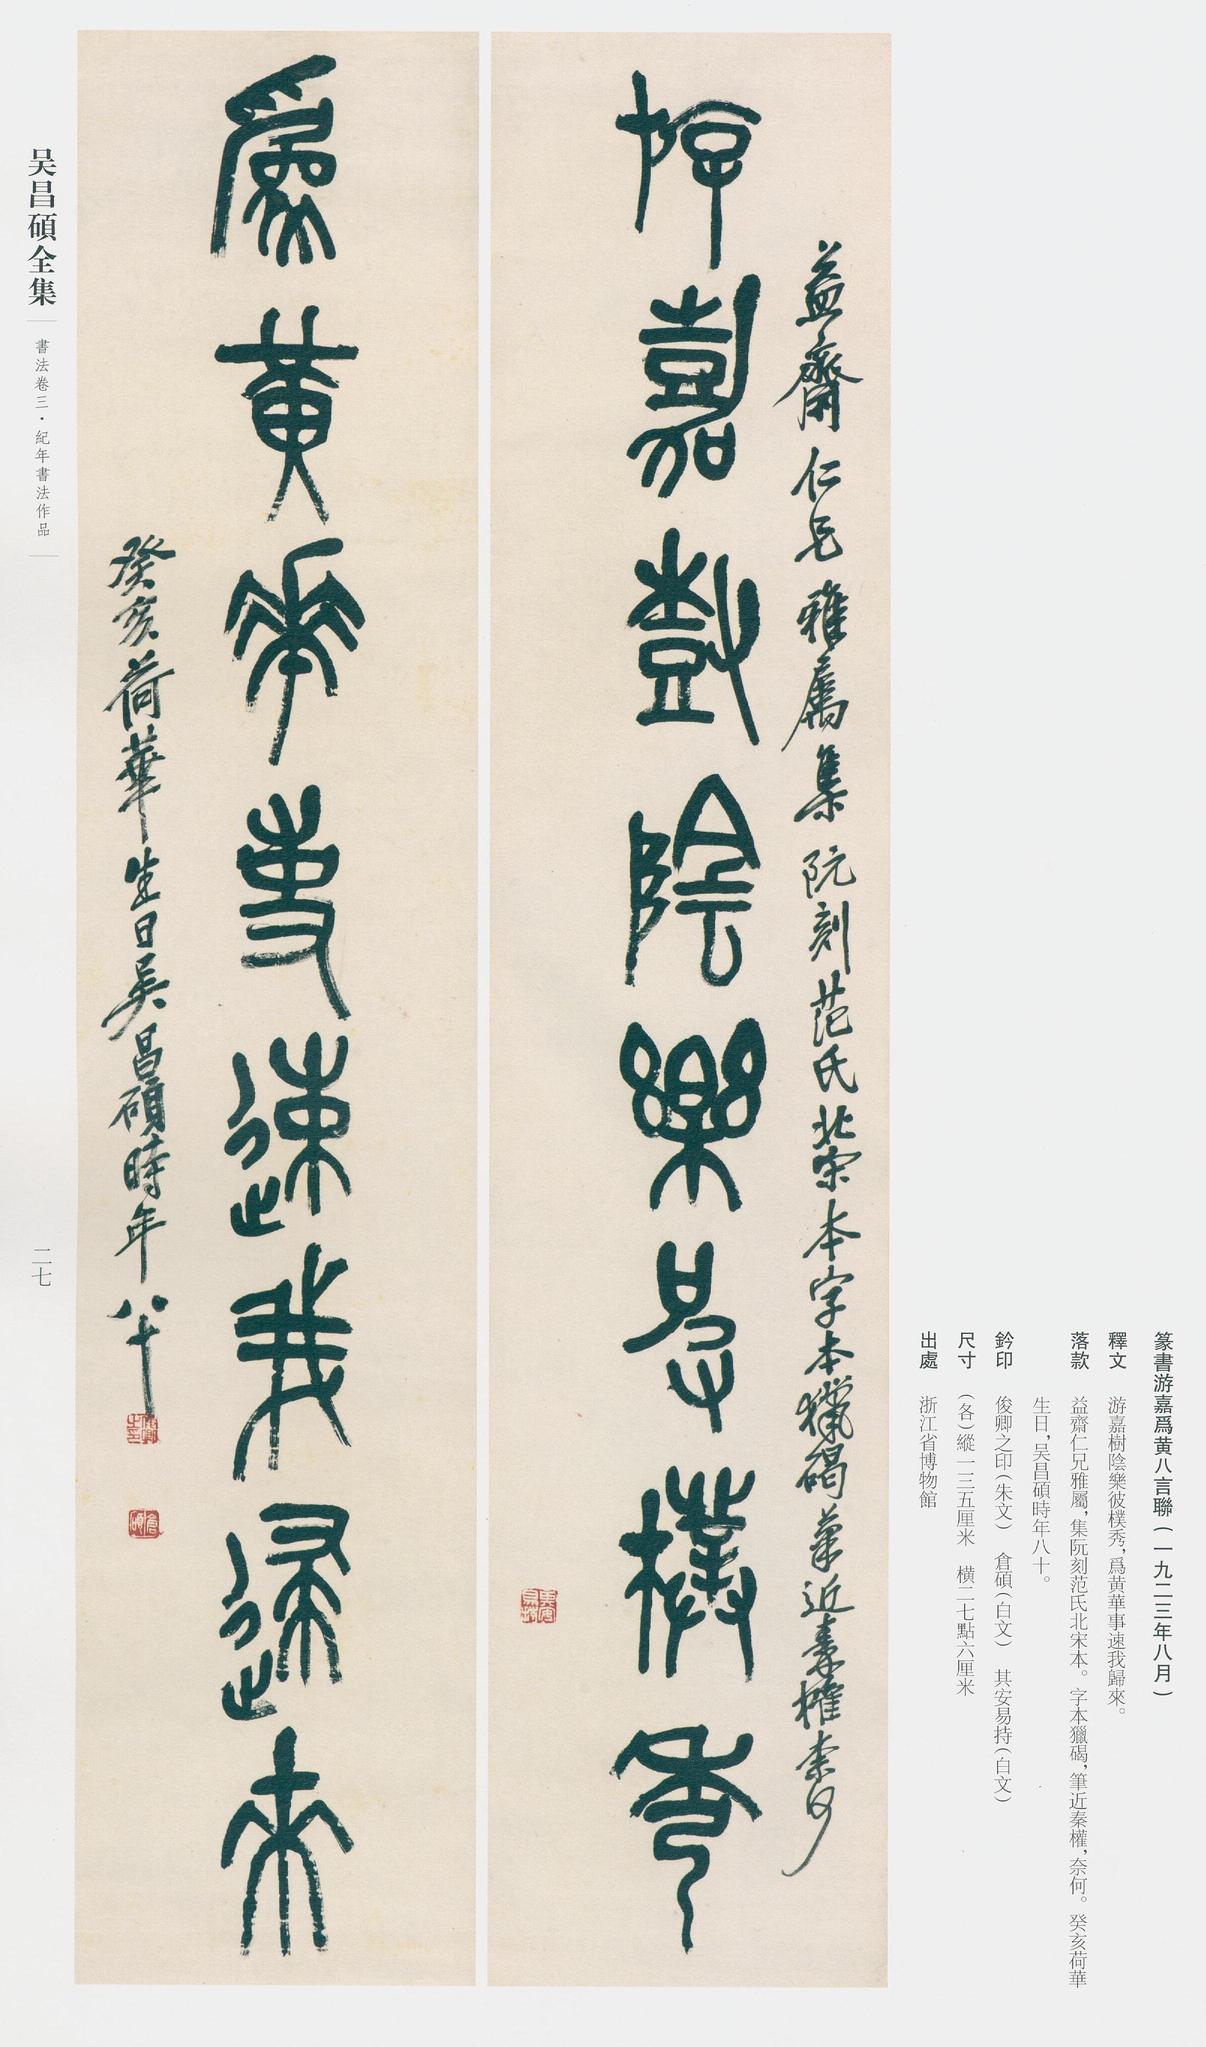 篆書游嘉爲黄八言聯(一九二三年八月)
釋文 游嘉樹陰樂彼樸秀,爲黄華事速我歸來。
落款 益齋仁兄雅屬,集阮刻范氏北宋本。字本獵碣,筆近秦權,奈何。癸亥荷華
生日,吴昌碩時年八十。
鈐印 俊卿之印(朱文) 倉碩(白文) 其安易持(白文)
尺寸 (各)縱一三五厘米 横二七點六厘米
出處 浙江省博物館
益齋仁兄雅屬集阮刻范氏北宋本字本獵碣筆近秦權奈何
游嘉樹陰樂彼樸秀
爲黄華事速我歸來
癸亥荷華生日吴昌碩時年八十
吴昌碩全集
書法卷三·紀年書法作品
二七